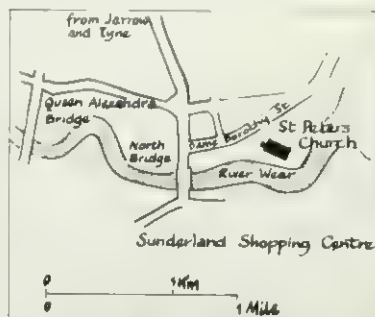 from Jarrow
and Tyne
Queen Alexandra
Bridge
North
Bridge
Dame Dorothy St
St Peters
Church
River Wear
Sunderland Shopping Centre
0
1 Km
0
1 Mile